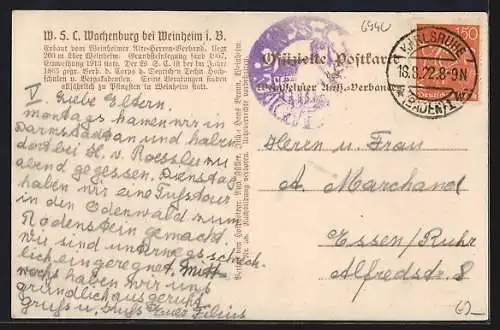 W. S. C. Wachenburg bei Weinheim i. B.
Erbaut vom Weinheimer Alte-Herren-Verband. Liegt
200 m über Weinheim. Grundsteinlegung fand 1907,
Einweihung 1913 statt. Der W. S. C. ist der im Jahre
1863 gegr. Verband d. Corps a. Deutschen Techn. Hoch-
schulen u. Bergakademien. Seine Beratungen finden
alljährlich zu Pfingsten in Weinheim statt.
Offizielle Postkarte
Weinheimer Alte-Herren-Verbandes
6940
150
KARLSRUHE
18.8.22.8-9N
(BADEN) 1
V. Liebe Eltern.
montags kamen wir in
Darmstadt an und haben
dort bei H. v. Roessler zu
abend gegessen. Dienstag
haben wir eine Fußtour
in den Odenwald zum
Rodenstein gemacht
wir sind unterwegs schreck-
lich eingeregnet. Mitt-
wochs haben wir uns
gründlich ausgeruht.
Gruß u. Kuß Euer Filius
Herrn u. Frau
A. Marchand
Essen/Ruhr
Alfredstr. 8